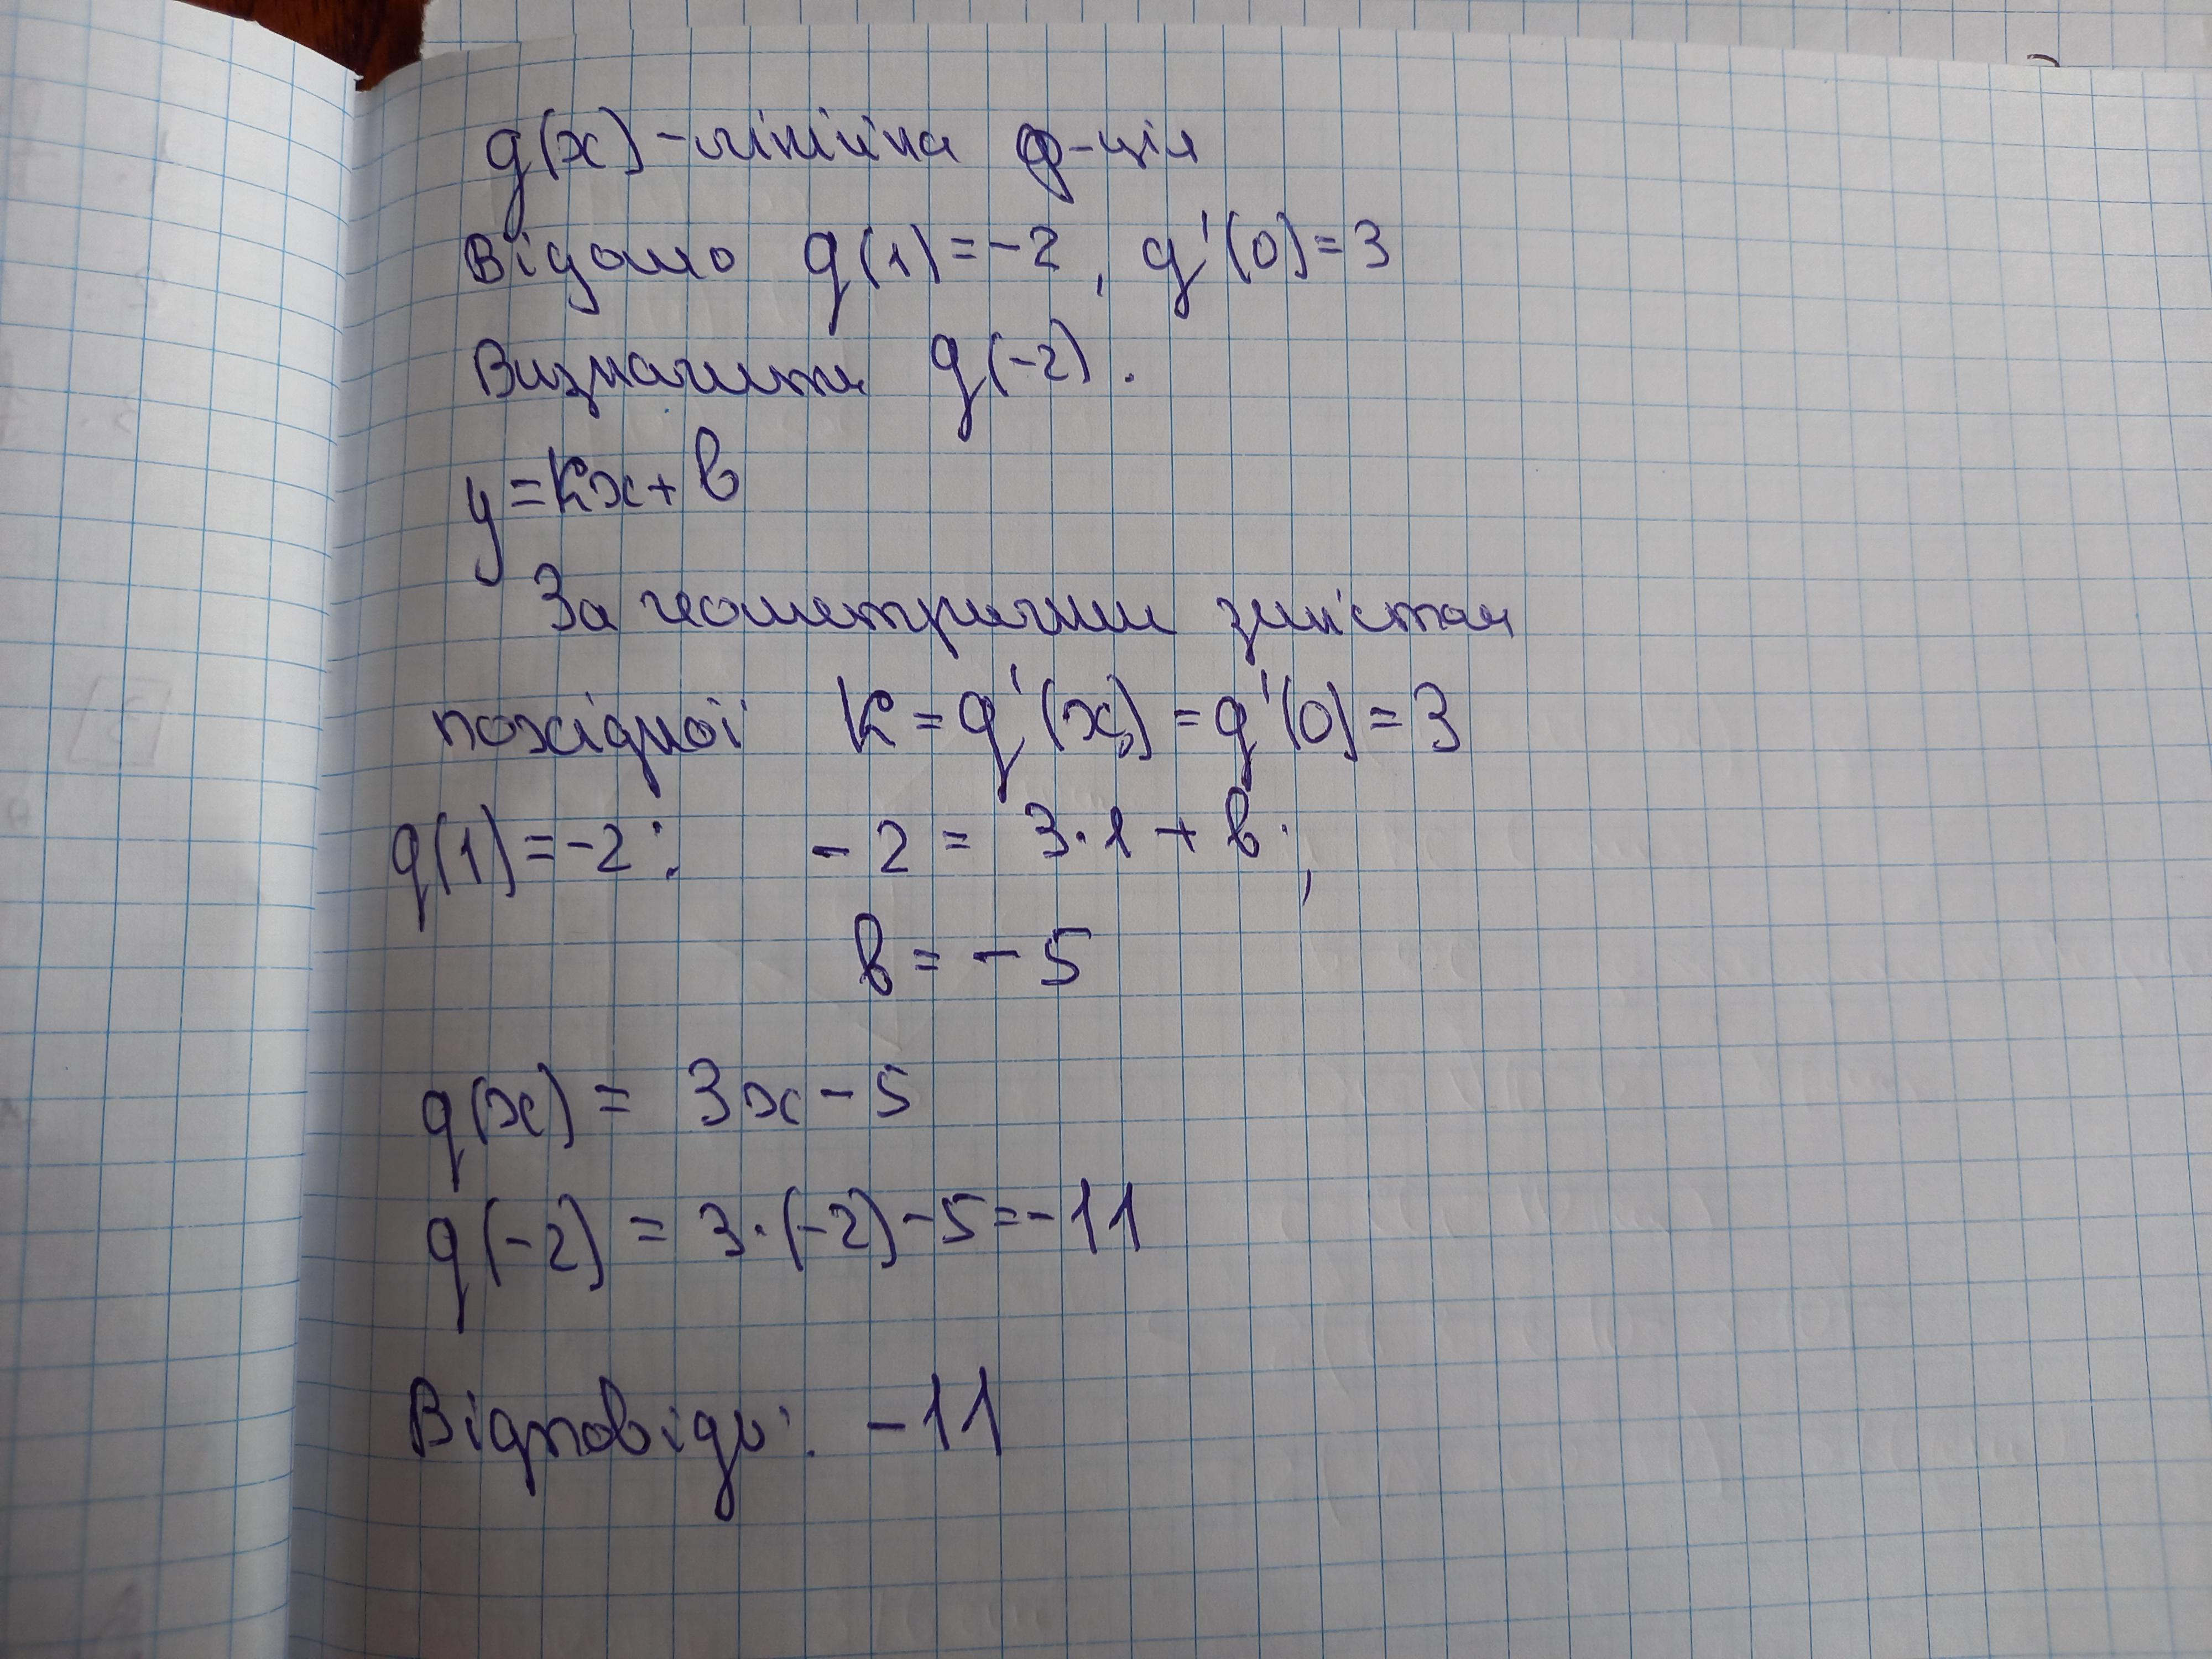 g(x) - лінійна ф-ція
Відомо g(1) = -2, g'(0) = 3
Визначити g(-2).
y = kx + b
За геометричним змістом
похідної k = g'(x₀) = g'(0) = 3
g(1) = -2: -2 = 3·1 + b;
b = -5
g(x) = 3x - 5
g(-2) = 3·(-2) - 5 = -11
Відповідь: -11